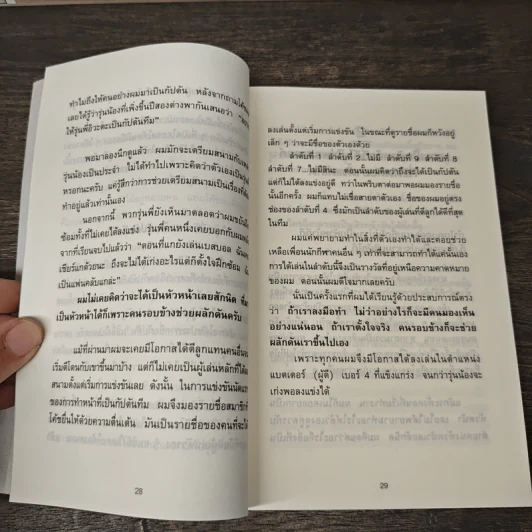 ทำไมถึงให้คนอย่างผมมาเป็นกัปตัน หลังจากถามโค้ช
เลยได้รู้ว่ารุ่นน้องที่เพิ่งขึ้นปีสองต่างพากันเสนอว่า
ให้รุ่นพี่อิวะตะเป็นกัปตันทีม"
พอมาลองนึกดูแล้ว ผมมักจะเตรียมสนามกับ
รุ่นน้องเป็นประจำ ไม่ได้ทำไปเพราะคิดว่าตัวเองเป็นรุ่น
หรอกนะครับ แค่รู้สึกว่าการช่วยเตรียมสนามเป็นเรื่องที่
ทำอยู่แล้วเท่านั้นเอง
นอกจากนี้ พวกรุ่นพี่ยังเห็นมาตลอดว่าผมขยัน
ซ้อมทั้งที่ไม่เคยได้ลงแข่ง รุ่นพี่คนหนึ่งเคยบอกกับผม
จากที่เรียนจบไปแล้วว่า "ตอนที่แกยังเล่นเบสบอล ฉัน
เชียร์แกด้วยนะ ถึงจะไม่ได้เก่งอะไรแต่ก็ตั้งใจฝึกซ้อม
เป็นแฟนคลับแกล่ะ"
ผมไม่เคยคิดว่าจะได้เป็นหัวหน้าเลยสักนิด
เป็นหัวหน้าได้ก็เพราะคนรอบข้างช่วยผลักดันครับ
แม้ที่ผ่านมาผมจะเคยมีโอกาสได้ตีลูกแทนคนอื่น
เริ่มตีโดนกับเขาขึ้นมาบ้าง แต่ก็ไม่เคยเป็นผู้เล่นหลักที่ได้ลง
สนามตั้งแต่เริ่มการแข่งขันเลย ดังนั้น ในการแข่งขันนัด
ของการทำหน้าที่เป็นกัปตันทีม ผมจึงมองรายชื่อสมาชิก
โค้ชยื่นให้ด้วยความตื่นเต้น มันเป็นรายชื่อของคนที่จะได้
28
ลงเล่นตั้งแต่เริ่มการแข่งขัน ในขณะที่ดูรายชื่อผมก็หวังอยู่
ลึก ๆ ว่าจะมีชื่อของตัวเองด้วย
ลำดับที่ 1 ลำดับที่ 2...ไม่มี ลำดับที่ 9 ลำดับที่ 8
ลำดับที่ 7...ไม่มีสินะ ตอนนั้นผมคิดว่าถึงจะได้เป็นกัปตัน
แต่ก็ไม่ได้ลงแข่งอยู่ดี ทว่าในพริบตาต่อมาพอผมมองรายชื่อ
นั้นอีกครั้ง ผมก็แทบไม่เชื่อสายตาตัวเอง ชื่อของผมอยู่ตรง
ช่องของลำดับที่ 4 ซึ่งมักเป็นลำดับของผู้เล่นที่ตีลูกได้ดีที่สุด
ในทีม
ผมแค่พยายามทำในสิ่งที่ตัวเองทำได้และคอยช่วย
เหลือเพื่อนนักกีฬาคนอื่น ๆ เท่าที่จะสามารถทำได้แค่นั้นเอง
การได้เล่นในลำดับนี้จึงเป็นรางวัลที่อยู่เหนือความคาดหมาย
ของผม ตอนนั้นผมดีใจมากเลยครับ
นั่นเป็นครั้งแรกที่ผมได้เรียนรู้ด้วยประสบการณ์ตรง
ว่า ถ้าเราลงมือทำ ไม่ว่าอย่างไรก็จะมีคนมองเห็น
อย่างแน่นอน ถ้าเราตั้งใจจริง คนรอบข้างก็จะช่วย
ผลักดันเราขึ้นไปเอง
เพราะทุกคนผมจึงมีโอกาสได้ลงเล่นในตำแหน่ง
แบตเตอร์ (ผู้ตี) เบอร์ 4 ที่แข็งแกร่ง จนกว่ารุ่นน้องจะ
เก่งพอลงแข่งได้
29